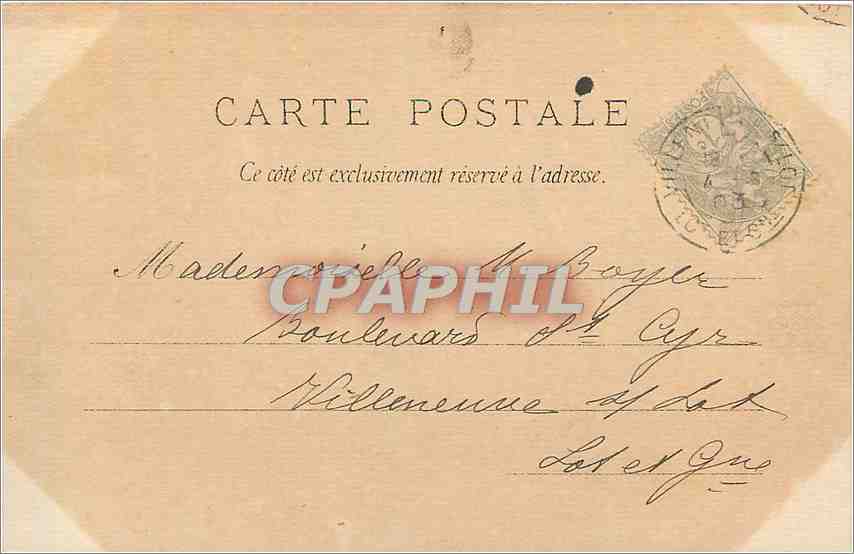 CARTE POSTALE
Ce côté est exclusivement réservé à l'adresse.
Mademoiselle M Boyer
CPAPHIL
Boulevard St Cyr
Villeneuve s/ Lot
Lot et Gne